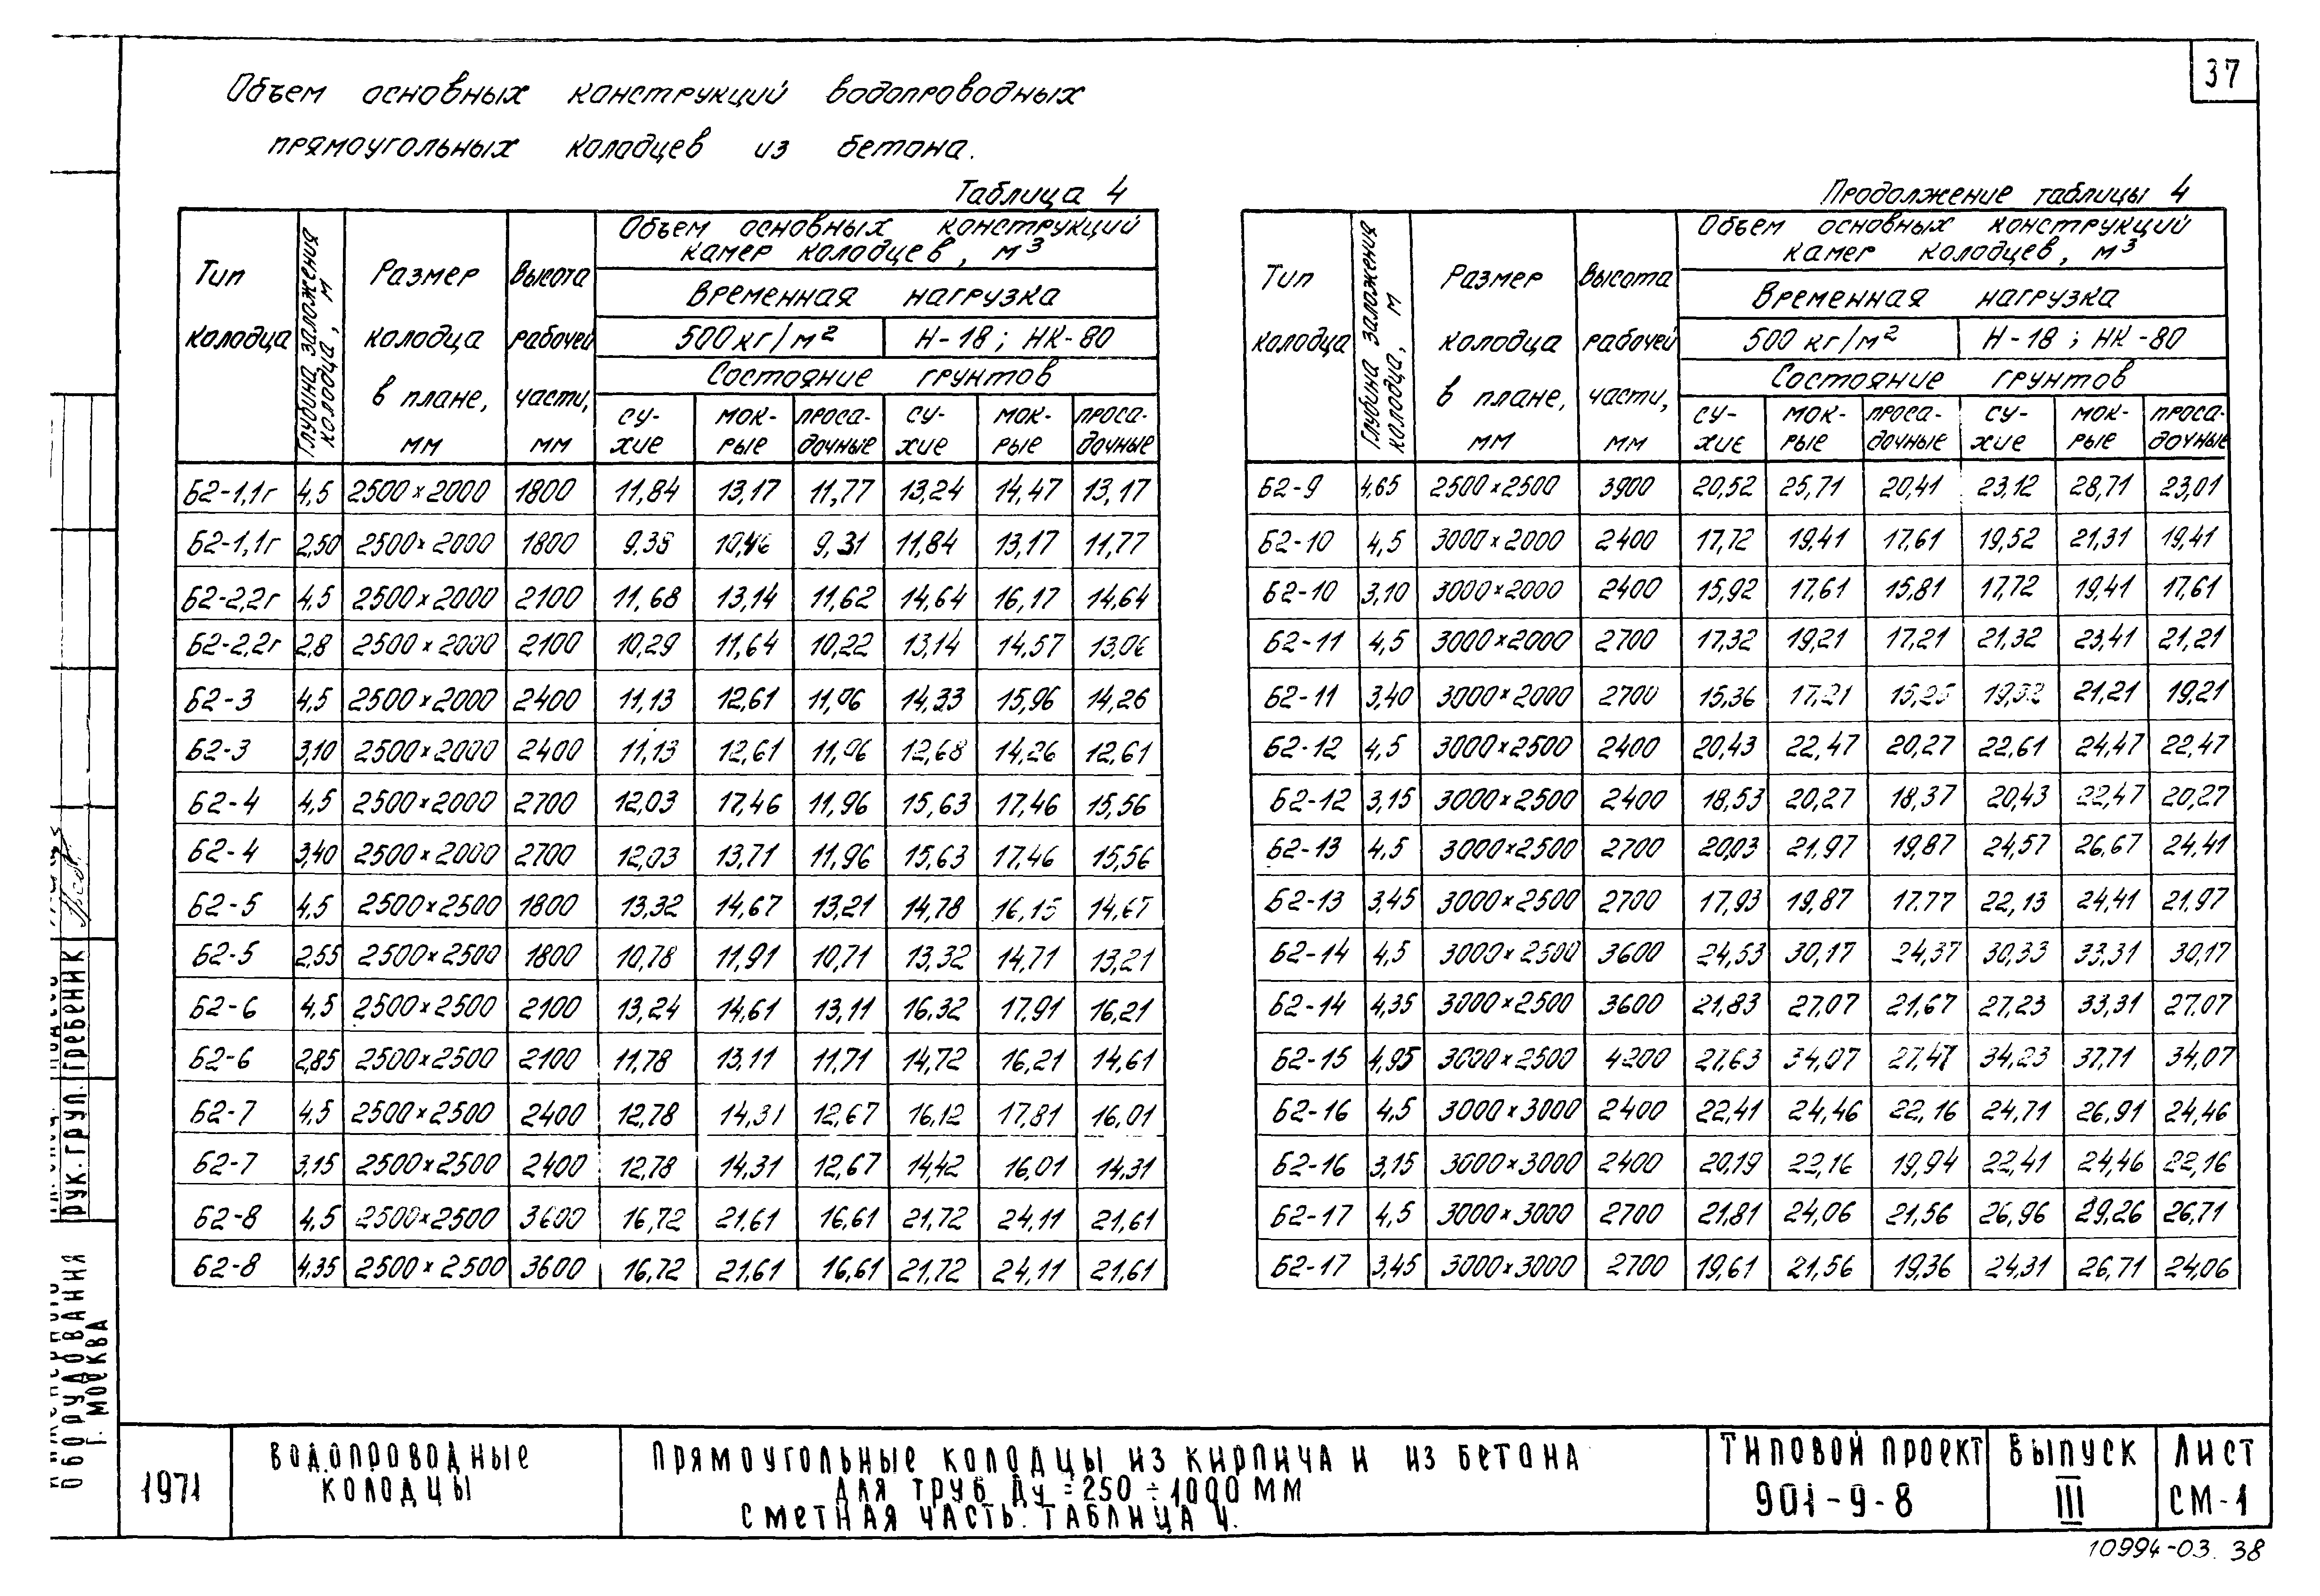 37
Объем основных конструкций водопроводных
прямоугольных колодцев из бетона.
Таблица 4
Тип колодца
Глубина заложения колодца, м
Размер колодца в плане, мм
Высота рабочей части, мм
Объем основных конструкций
камер колодцев, м3
Временная нагрузка
500 кг/м2 Н-18; НК-80
Состояние грунтов
сухие мокрые просадочные сухие мокрые просадочные
Б2-1,1г 4,5 2500×2000 1800 11,84 13,17 11,77 13,24 14,47 13,17
Б2-1,1г 2,50 2500×2000 1800 9,38 10,46 9,31 11,84 13,17 11,77
Б2-2,2г 4,5 2500×2000 2100 11,68 13,14 11,62 14,64 16,17 14,64
Б2-2,2г 2,8 2500×2000 2100 10,29 11,64 10,22 13,14 14,57 13,06
Б2-3 4,5 2500×2000 2400 11,13 12,61 11,06 14,33 15,96 14,26
Б2-3 3,10 2500×2000 2400 11,13 12,61 11,06 12,68 14,26 12,61
Б2-4 4,5 2500×2000 2700 12,03 17,46 11,96 15,63 17,46 15,56
Б2-4 3,40 2500×2000 2700 12,03 13,71 11,96 15,63 17,46 15,56
Б2-5 4,5 2500×2500 1800 13,32 14,67 13,21 14,78 16,15 14,67
Б2-5 2,55 2500×2500 1800 10,78 11,91 10,71 13,32 14,71 13,21
Б2-6 4,5 2500×2500 2100 13,24 14,61 13,11 16,32 17,91 16,21
Б2-6 2,85 2500×2500 2100 11,78 13,11 11,71 14,72 16,21 14,61
Б2-7 4,5 2500×2500 2400 12,78 14,31 12,67 16,12 17,81 16,01
Б2-7 3,15 2500×2500 2400 12,78 14,31 12,67 14,42 16,01 14,31
Б2-8 4,5 2500×2500 3600 16,72 21,61 16,61 21,72 24,11 21,61
Б2-8 4,35 2500×2500 3600 16,72 21,61 16,61 21,72 24,11 21,61
Продолжение таблицы 4
Тип колодца
Глубина заложения колодца, м
Размер колодца в плане, мм
Высота рабочей части, мм
Объем основных конструкций
камер колодцев, м3
Временная нагрузка
500 кг/м2 Н-18; НК-80
Состояние грунтов
сухие мокрые просадочные сухие мокрые просадочные
Б2-9 4,65 2500×2500 3900 20,52 25,71 20,41 23,12 28,71 23,01
Б2-10 4,5 3000×2000 2400 17,72 19,41 17,61 19,52 21,31 19,41
Б2-10 3,10 3000×2000 2400 15,92 17,61 15,81 17,72 19,41 17,61
Б2-11 4,5 3000×2000 2700 17,32 19,21 17,21 21,32 23,41 21,21
Б2-11 3,40 3000×2000 2700 15,36 17,21 15,25 19,32 21,21 19,21
Б2-12 4,5 3000×2500 2400 20,43 22,47 20,27 22,61 24,47 22,47
Б2-12 3,15 3000×2500 2400 18,53 20,27 18,37 20,43 22,47 20,27
Б2-13 4,5 3000×2500 2700 20,03 21,97 19,87 24,57 26,67 24,41
Б2-13 3,45 3000×2500 2700 17,93 19,87 17.77 22,13 24,41 21,97
Б2-14 4,5 3000×2500 3600 24,53 30,17 24,37 30,33 33,31 30,17
Б2-14 4,35 3000×2500 3600 21,83 27,07 21,67 27,23 33,31 27,07
Б2-15 4,95 3000×2500 4200 27,63 34,07 27,47 34,23 37,71 34,07
Б2-16 4,5 3000×3000 2400 22,41 24,46 22,16 24,71 26,91 24,46
Б2-16 3,15 3000×3000 2400 20,19 22,16 19,94 22,41 24,46 22,16
Б2-17 4,5 3000×3000 2700 21,81 24,06 21,56 26,96 29,26 26,71
Б2-17 3,45 3000×3000 2700 19,61 21,56 19,36 24,31 26,71 24,06
рук. груп. Гребеник
оборудования
г. Москва
1971
Водопроводные
колодцы
Прямоугольные колодцы из кирпича и из бетона
для труб Ду = 250 ÷ 1000 мм
Сметная часть. Таблица 4.
Типовой проект
901-9-8
Выпуск
III
Лист
СМ-1
10994-03. 38